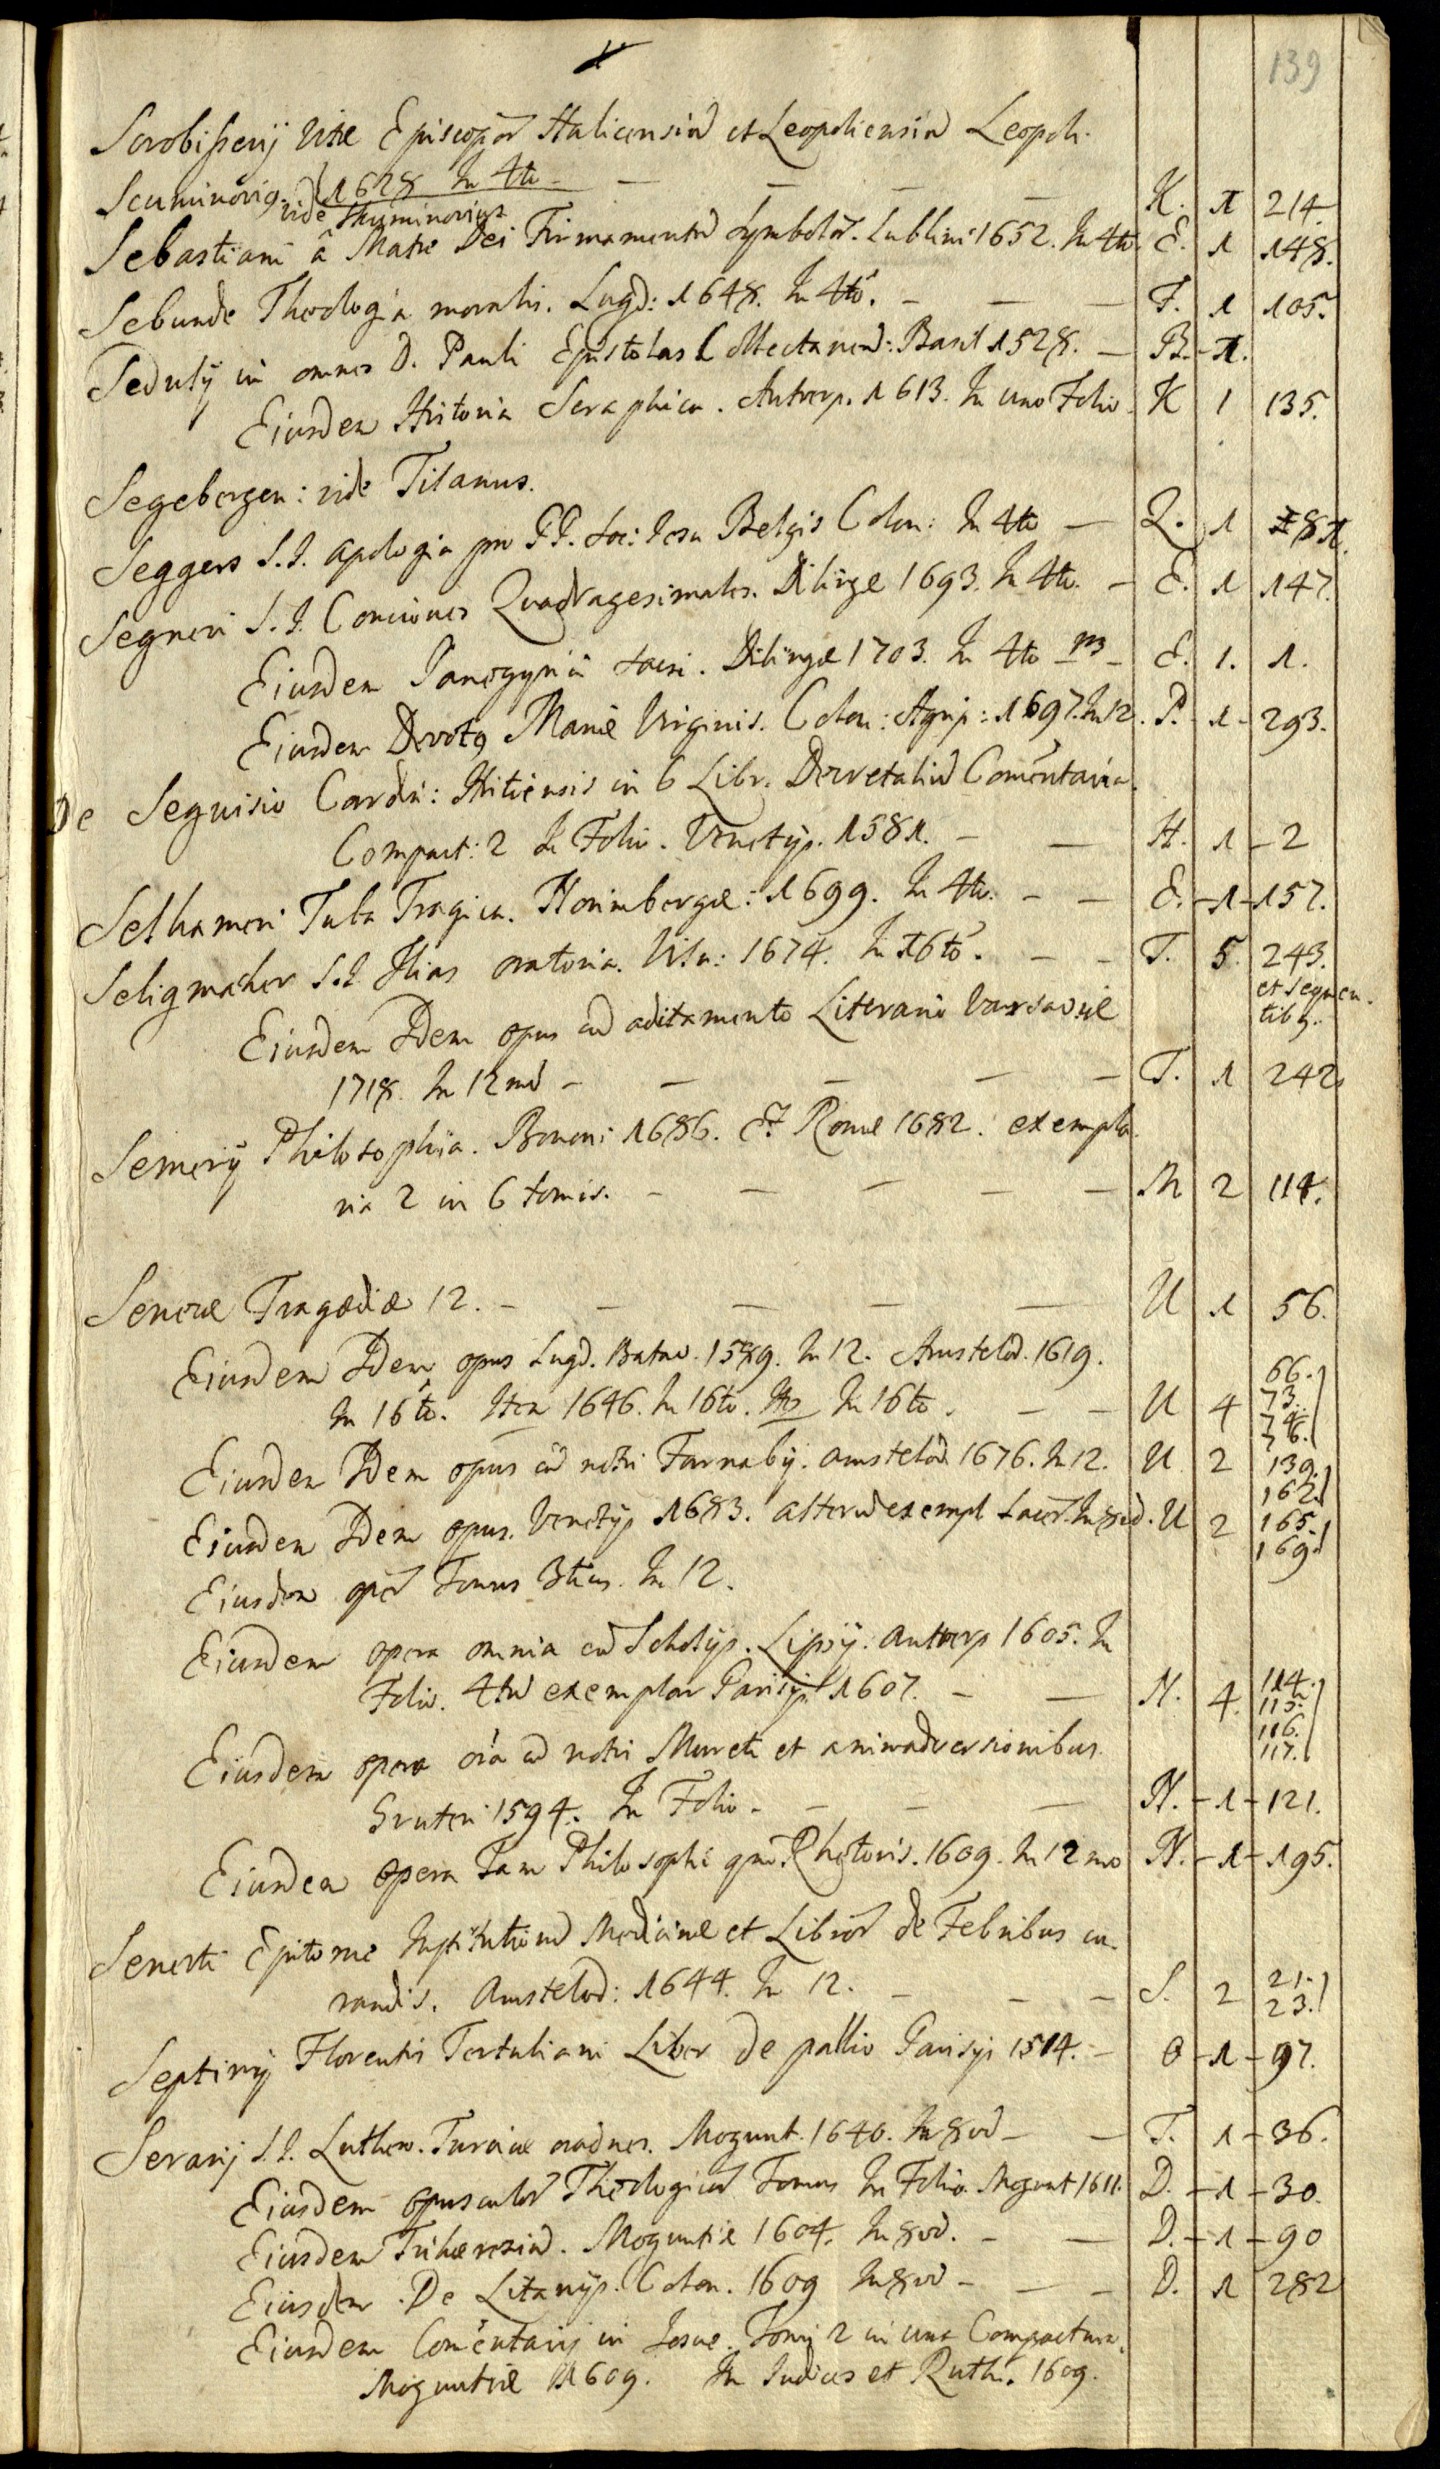 139
Scrobiszevij Vitæ Episcopor Haliciensiu et Leopoliensiu Leopoli.
1628 In 4to — — — — K. 1 214.
Scuminovig. vide Skuminovius
Sebastiani â Matre Dei Firmamentu Symbolor. Lublini 1652. In 4to. E. 1 148.
Sebunde Theologia moralis. Lugd: 1648. In 4to. — — — F. 1 105.
Sedulÿ in omnes D. Pauli Epistolas Collectanea: Basil 1528. — B. - 1.
Eiusdem Historia Seraphica. Antverp. 1613. In uno Folio. K 1 135.
Segebergen: vide Titanus.
Seggers S.J. Apologia pro PP. Soc: Jesu Belgis Colon: In 4to — Q. 1 81.
Segneri S.J. Conciones Quadragesimales. Dilingæ 1693. In 4to. — E. 1 147.
Eiusdem Panegyrici sacri. Dilingæ 1703. In 4to — E. 1. 1.
Eiusdem Devotq Mariæ Virginis. Colon: Agrip: 1697. In 12. P. - 1 - 293.
De Segusio Cardin: Hostiensis in 6 Libr. Decretaliu Comentaria.
Compact: 2 In Folio. Venetÿs. 1581. — — H. 1 - 2
Selhameri Tuba Tragica. Norimbergæ: 1699. In 4to. — — E. - 1 - 157.
Seligmacher S.J. Ilias oratoria. Viln: 1674. In 16to. — — T. 5. 243.
et sequen.
tibq.
Eiusdem Idem opus cu aditamento Literario Varsaviæ
1718. In 12mo — — — — — T. 1 242
Semerÿ Philosophia. Bonon: 1686. Et Romæ 1682. exempla
ria 2 in 6 tomis. — — — — — M 2 114.
Senecæ Tragædiæ 12. — — — — — U 1 56.
Eiusdem Idem opus Lugd. Batav. 1589. In 12. Amstelod. 1619.
In 16to. Item 1646. In 16to. In 16to. — — U 4 66. 73. 74. 76.
Eiusdem Idem opus cu notis Farnabÿ. Amstelod. 1676. In 12. U 2 139. 162.
Eiusdem Idem opus. Venetÿs 1683. alteru exempl lacer. In 8vo. U 2 165. 169.
Eiusdem oper Tomus 3tius. In 12.
Eiusdem opera omnia cu Scholÿs. Lipsÿ. Antverp 1605. In
Folio. 4tu exemplar Parisÿs 1607. — — N. 4. 114. 115. 116. 117.
Eiusdem opera oia cu notis Mureti et animadversionibus
Gruteri 1594. In Folio. — — — N. - 1 - 121.
Eiusdem opera Tam Philosophi qm Rhetoris. 1609. In 12mo N. - 1 - 195.
Senerti Epitome Institutionu Medicinæ et Libror de Febribus cu.
randis. Amstelod: 1644. In 12. — — — S. 2 21. 23.
Septimÿ Florentis Tertuliani Liber de pallio Parisÿs 1514. — O - 1 - 97.
Serarij S.J. Luthero. Turcicæ oradnes. Mogunt. 1640. In 8vo — — T. 1 - 36.
Eiusdem opusculor Theologicor Tomus In Folio. Mogunt 1611. D. - 1 - 30.
Eiusdem Trihæresiu. Moguntiæ 1604. In 8vo. — — D. - 1 - 90
Eiusdem De Litanÿs. Colon. 1609 In 8vo — — — D. 1 282
Eiusdem Comentarij in Josue. Tomi 2 in una Compactura.
Moguntiæ 1609. In Judices et Ruth. 1609.